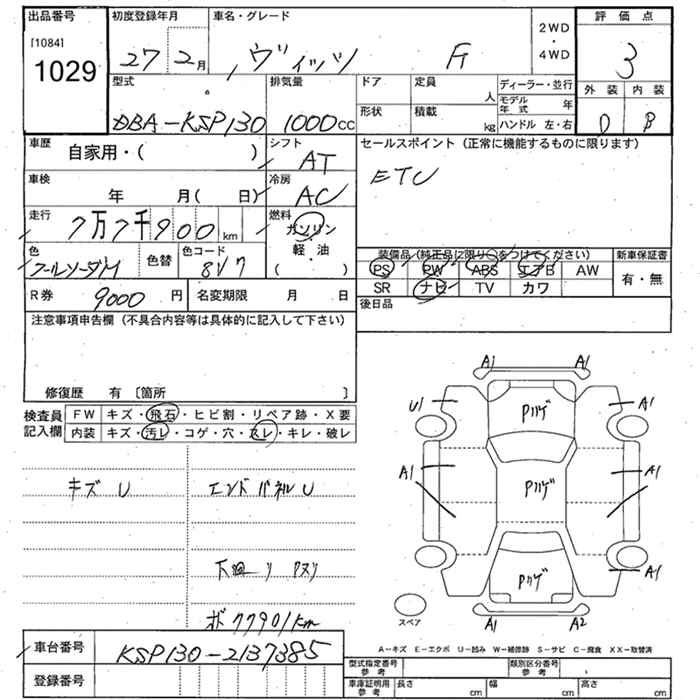 出品番号 初度登録年月 車名・グレード 2WD・4WD 評価点
[1084]
1029 27 2月 ヴィッツ F 3
型式 排気量 ドア 定員 人 ディーラー・並行 外装 内装
DBA-KSP130 1000cc 形状 積載 kg モデル年式 年 D B
ハンドル 左・右
車歴 自家用・( ) シフト AT セールスポイント (正常に機能するものに限ります)
車検 年 月( 日) 冷房 AC ETC
走行 7万7千900km 燃料 ガソリン・軽・油 ( )
装備品(純正品に限り○をつけてください) 新車保証書
色 クールソーダM 色替 色コード 8V7 PS PW ABS エアB AW 有・無
SR ナビ TV カワ
R券 9000円 名変期限 月 日 後日品
注意事項申告欄(不具合内容等は具体的に記入して下さい)
修復歴 有 〔箇所 〕
検査員記入欄 FW キズ・飛石・ヒビ割・リペア跡・X要
内装 キズ・汚レ・コゲ・穴・スレ・キレ・破レ
A1 A1
U1 Pハゲ A1
A1 Pハゲ A1
Pハゲ A1
A1 A2
スペア
キズ U エンドパネル U
下廻り Pヌリ
ボ 77901km
A−キズ E−エクボ U−凹み W−補修跡 S−サビ C−腐食 XX−取替済
車台番号 KSP130-2137385
型式指定番号 参考 類別区分番号 参考
登録番号 車庫証明用 参考 長さ cm 幅 cm 高さ cm